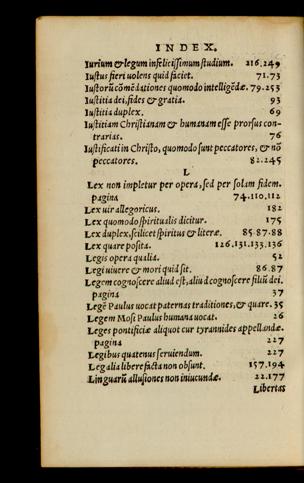 INDEX.
Iurium & legum infelicissimum studium. 216.249
Iustus fieri uolens quid faciet. 71.73
Iustorū cōmēdationes quomodo intelligēdæ. 79.253
Iustitia dei, fides & gratia. 93
Iustitia duplex. 69
Iustitiam Christianam & humanam esse prorsus con-
trarias. 76
Iustificati in Christo, quomodo sunt peccatores, & nō
peccatores. 82.245
L
Lex non impletur per opera, sed per solam fidem.
pagina 74.110.112
Lex uir allegoricus. 182
Lex quomodo spiritualis dicitur. 175
Lex duplex, scilicet spiritus & literæ. 85.87.88
Lex quare posita. 126.131.133.136
Legis opera qualia. 52
Legi uiuere & mori quid sit. 86.87
Legem cognoscere aliud est, aliud cognoscere filiū dei.
pagina 37
Legē Paulus uocat paternas traditiones, & quare. 35
Legem Mosi Paulus humana uocat. 26
Leges pontificiæ aliquot cur tyrannides appellandæ.
pagina 227
Legibus quatenus seruiendum. 227
Legalia libere facta non obsunt. 157.194
Linguarū allusiones non iniucundæ. 22.177
Libertas